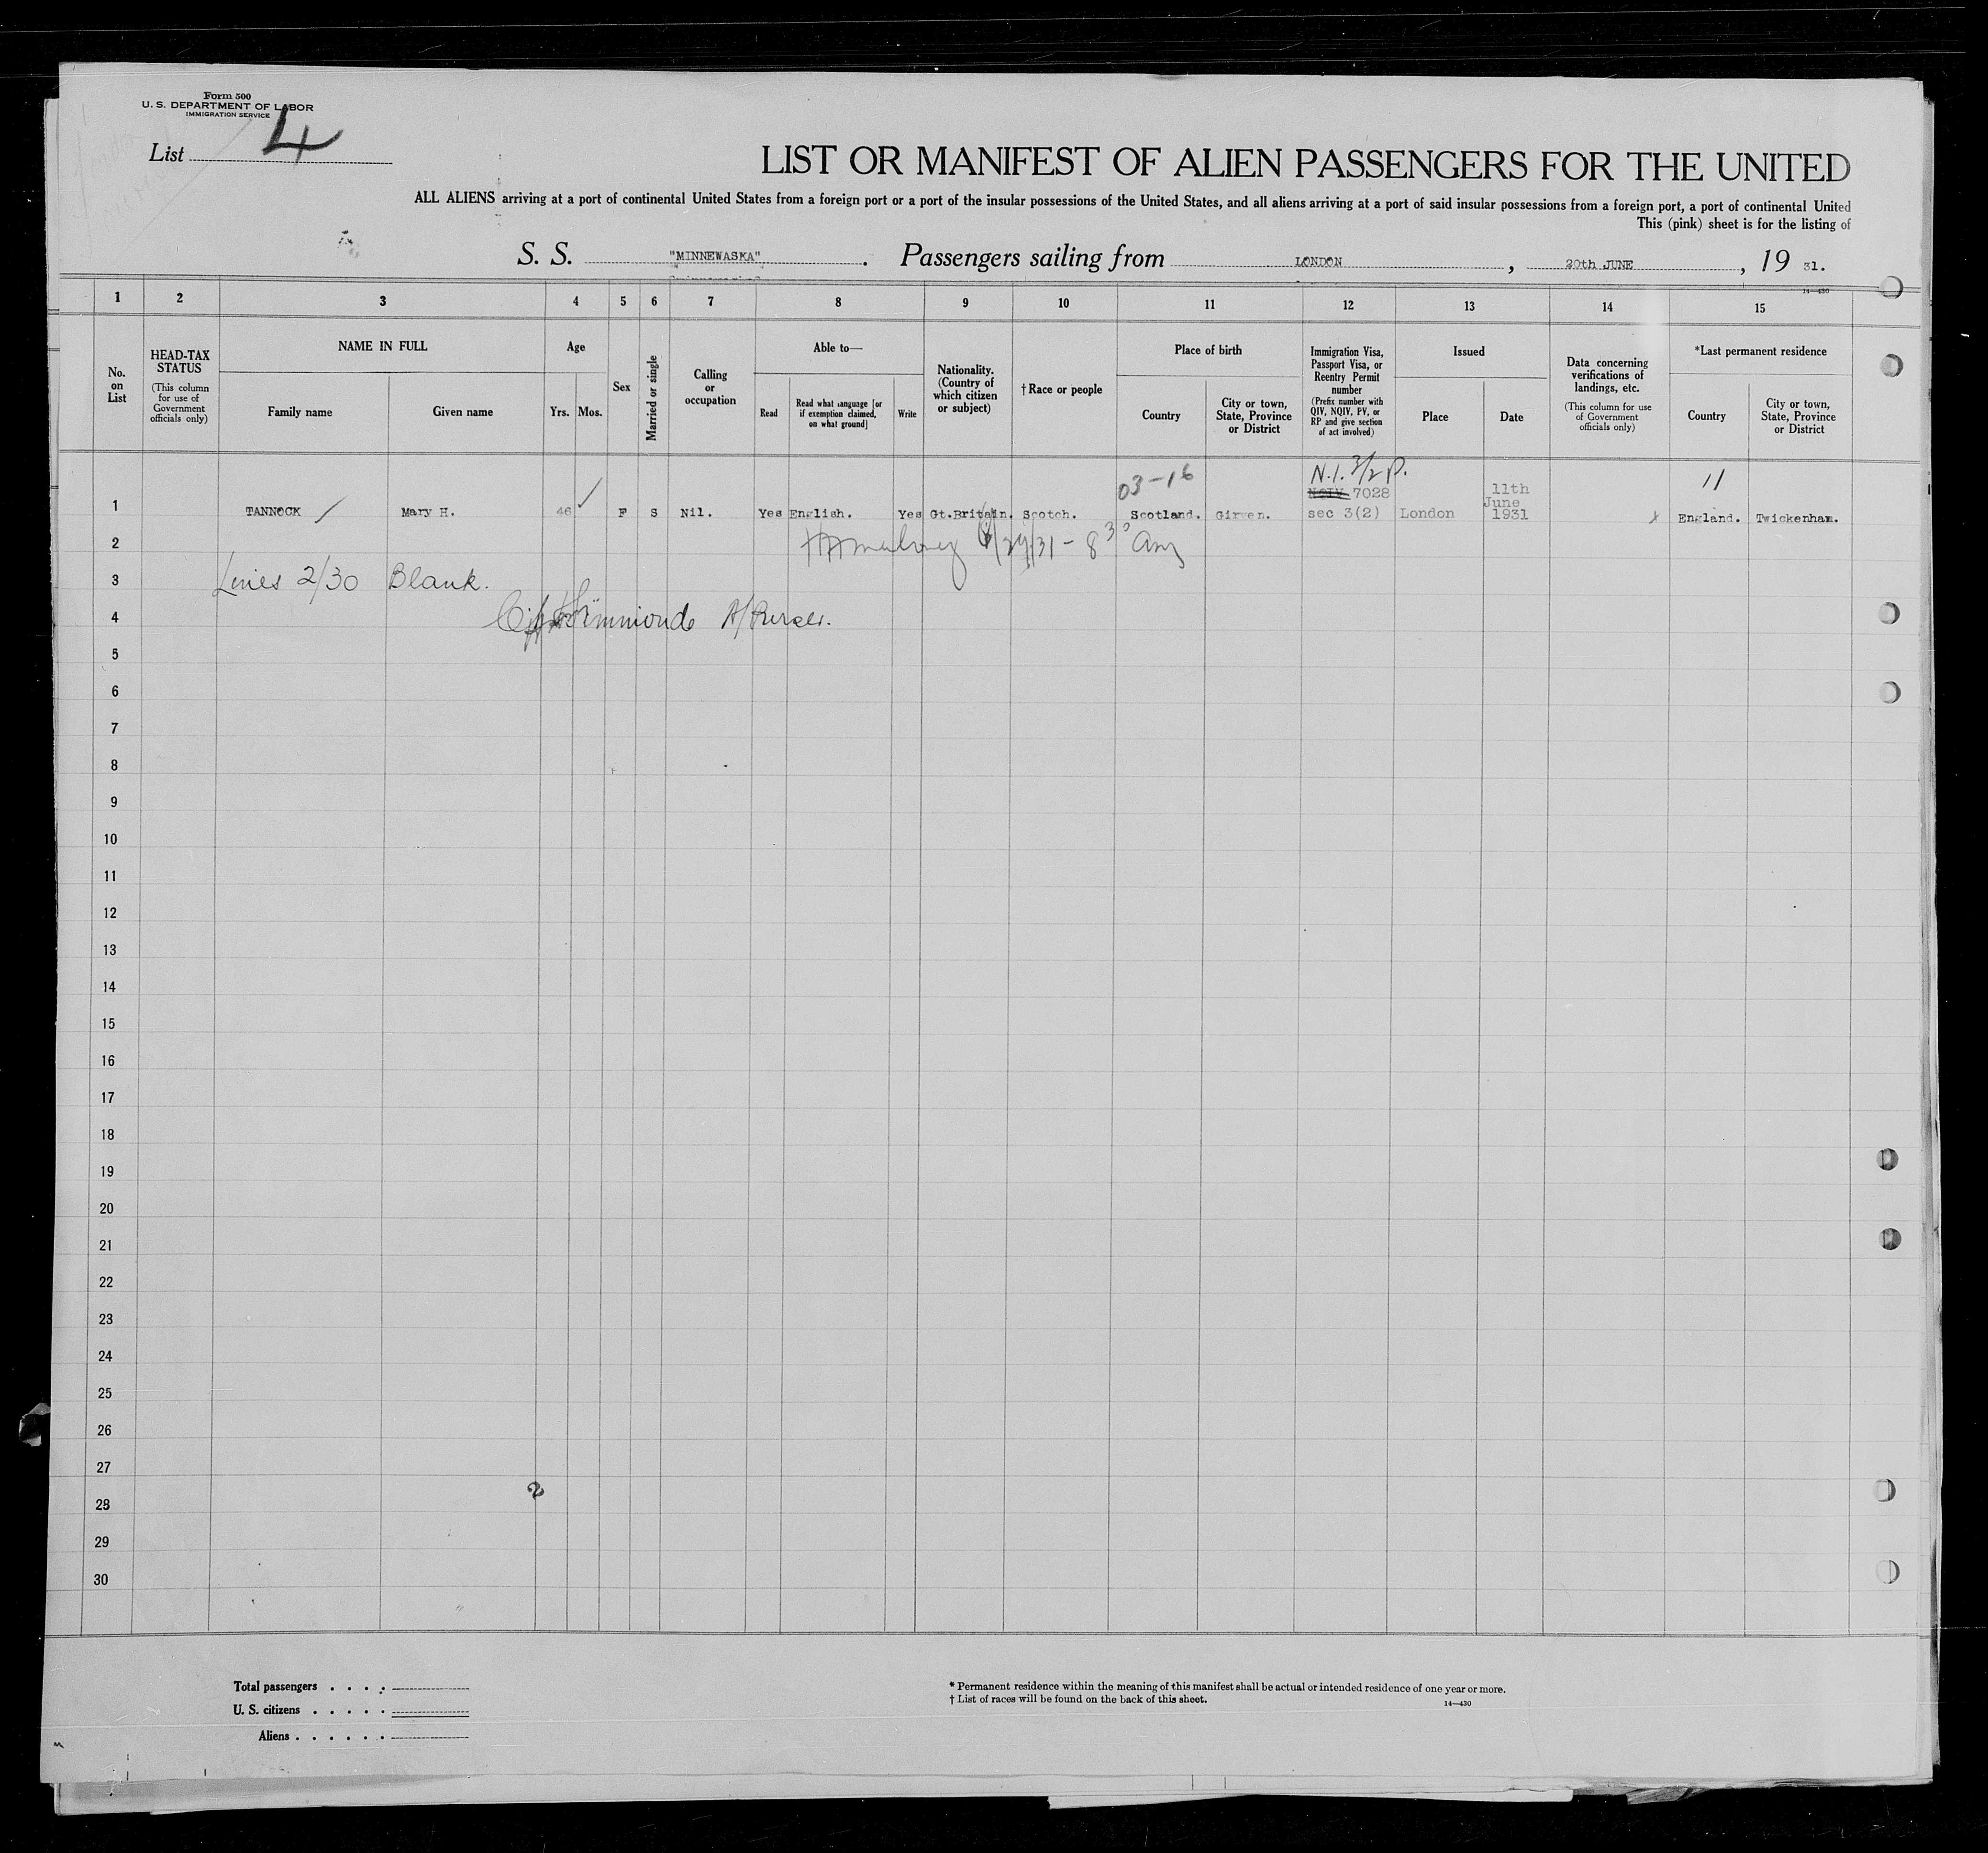 Form 500
U. S. DEPARTMENT OF LABOR
IMMIGRATION SERVICE
List 4
LIST OR MANIFEST OF ALIEN PASSENGERS FOR THE UNITED
ALL ALIENS arriving at a port of continental United States from a foreign port or a port of the insular possessions of the United States, and all aliens arriving at a port of said insular possessions from a foreign port, a port of continental United
This (pink) sheet is for the listing of
S. S. "MINNEWASKA". Passengers sailing from LONDON, 20th JUNE, 19 31.
14—430
1 2 3 4 5 6 7 8 9 10 11 12 13 14 15
No. on List
HEAD-TAX STATUS
(This column for use of Government officials only)
NAME IN FULL
Family name
Given name
Age
Yrs.
Mos.
Sex
Married or single
Calling or occupation
Able to—
Read
Read what language [or if exemption claimed, on what ground]
Write
Nationality. (Country of which citizen or subject)
†Race or people
Place of birth
Country
City or town, State, Province or District
Immigration Visa, Passport Visa, or Reentry Permit number
(Prefix number with QIV, NQIV, PV, or RP and give section of act involved)
Issued
Place
Date
Data concerning verifications of landings, etc.
(This column for use of Government officials only)
*Last permanent residence
Country
City or town, State, Province or District
03-16 N.I. 3/2 P. 11
NQIV 7028 11th June
1 TANNOCK Mary H. 46 F S Nil. Yes English. Yes Gt.Britain. Scotch. Scotland. Girven. sec 3(2) London 1931 x England. Twickenham.
2 6/29/31 - 8 30
3 Lines 2/30 Blank.
4 Simmonds A/Purser.
5
6
7
8
9
10
11
12
13
14
15
16
17
18
19
20
21
22
23
24
25
26
27
2
28
29
30
Total passengers . . . .
U. S. citizens . . . . .
Aliens . . . . . .
* Permanent residence within the meaning of this manifest shall be actual or intended residence of one year or more.
† List of races will be found on the back of this sheet.
14—430